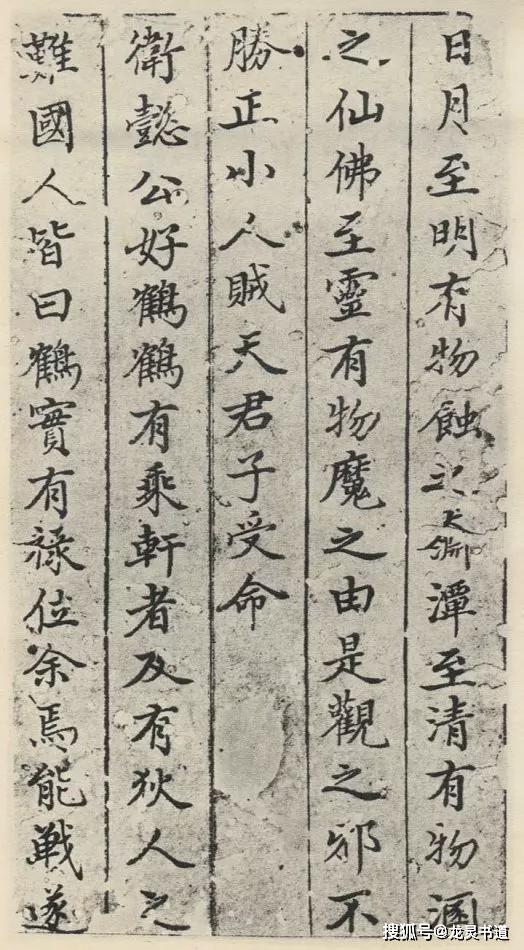 日月至明有物蝕之淵潭至清有物溷
之仙佛至靈有物魔之由是觀之邪不
勝正小人賊天君子受命
衛懿公好鶴鶴有乘軒者及有狄人之
難國人皆曰鶴實有祿位余焉能戰遂
搜狐号@龙灵书道